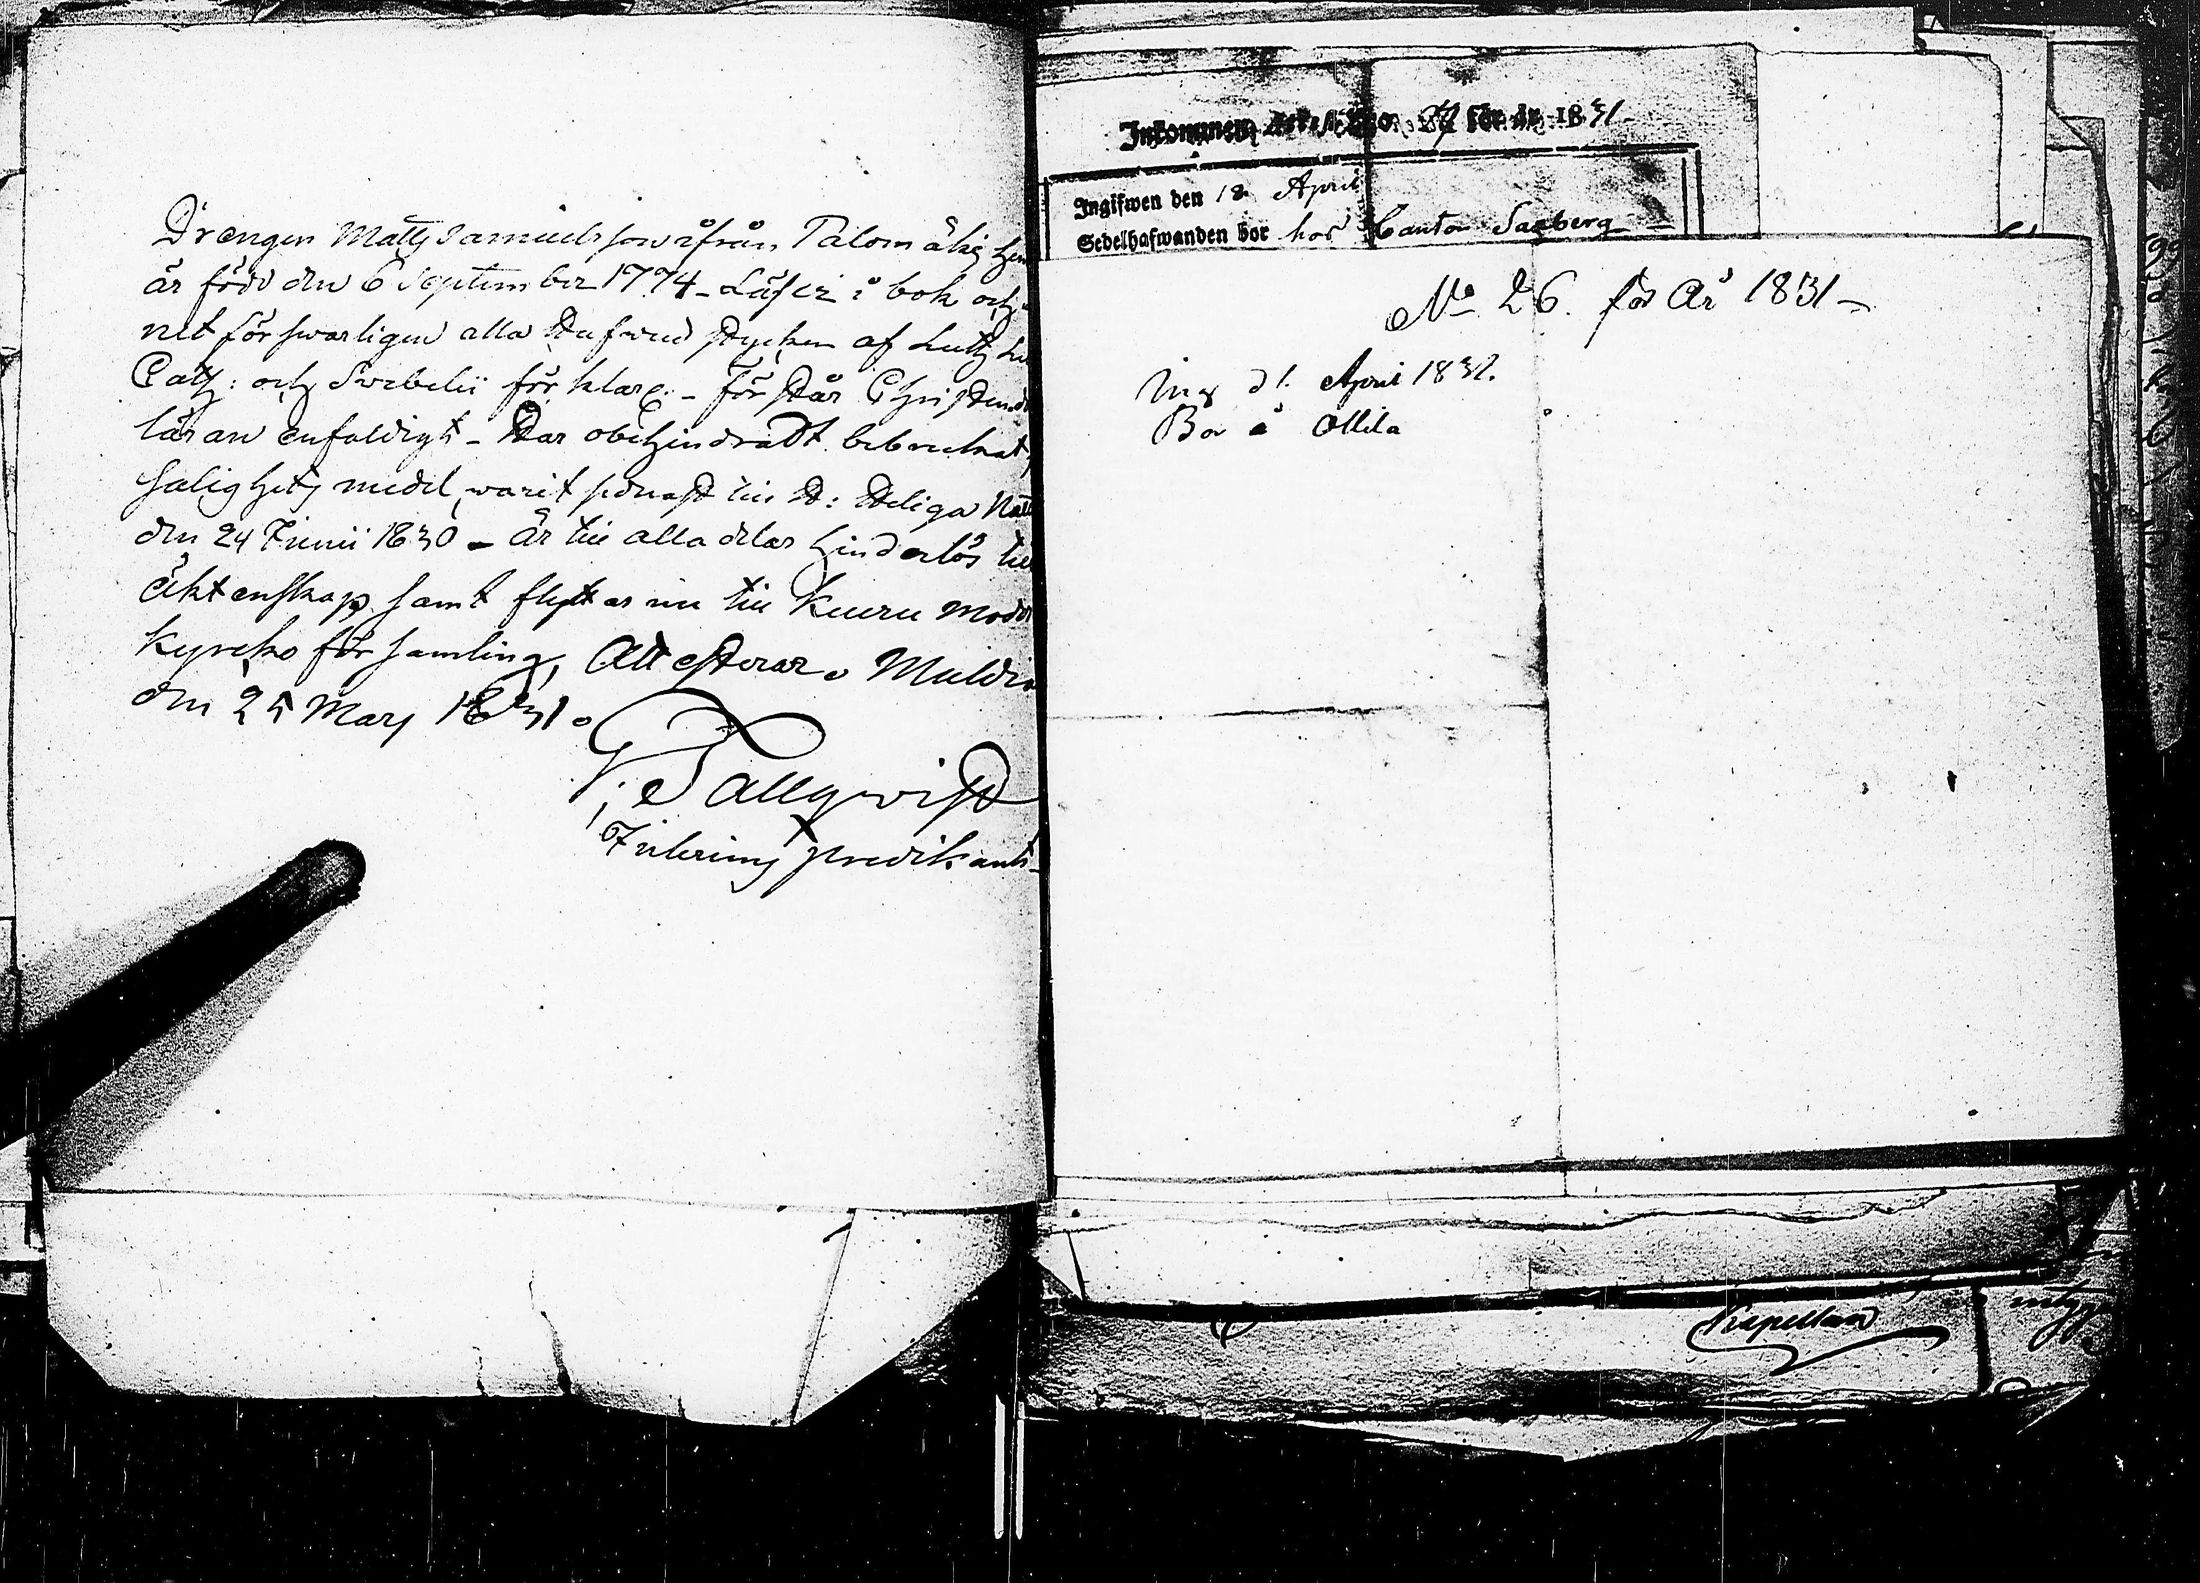 Drengen Matts Samuelsson ifrån Palomäki hem
är född den 6 September 1774 - Läser i bok och
net försvarligen alla Hufvud stycken af Luth: Lu
Cat: och Svebelii förklar: - förstår Christendo
läran enfaldigt - Har obehindradt bebrukat
salighets medel, warit sednast till H: Heliga Natt
den 24 Junii 1830 - Är till alla delar hinderlös till
äktenskap samt flyttar nu till Kuru moder
kyrcko församling, Attesterar. Muldia
den 25 Mars 1831.
G: Tallqwist
Inkommen Attest No. 27 för år 1831
Ingifwen den 18 April
Sedelhafwanden bor hos Cantor Saxberg
No 26. för År 1831 -
Ing d 1. April 1831.
Bor å Ollila
Kapellan